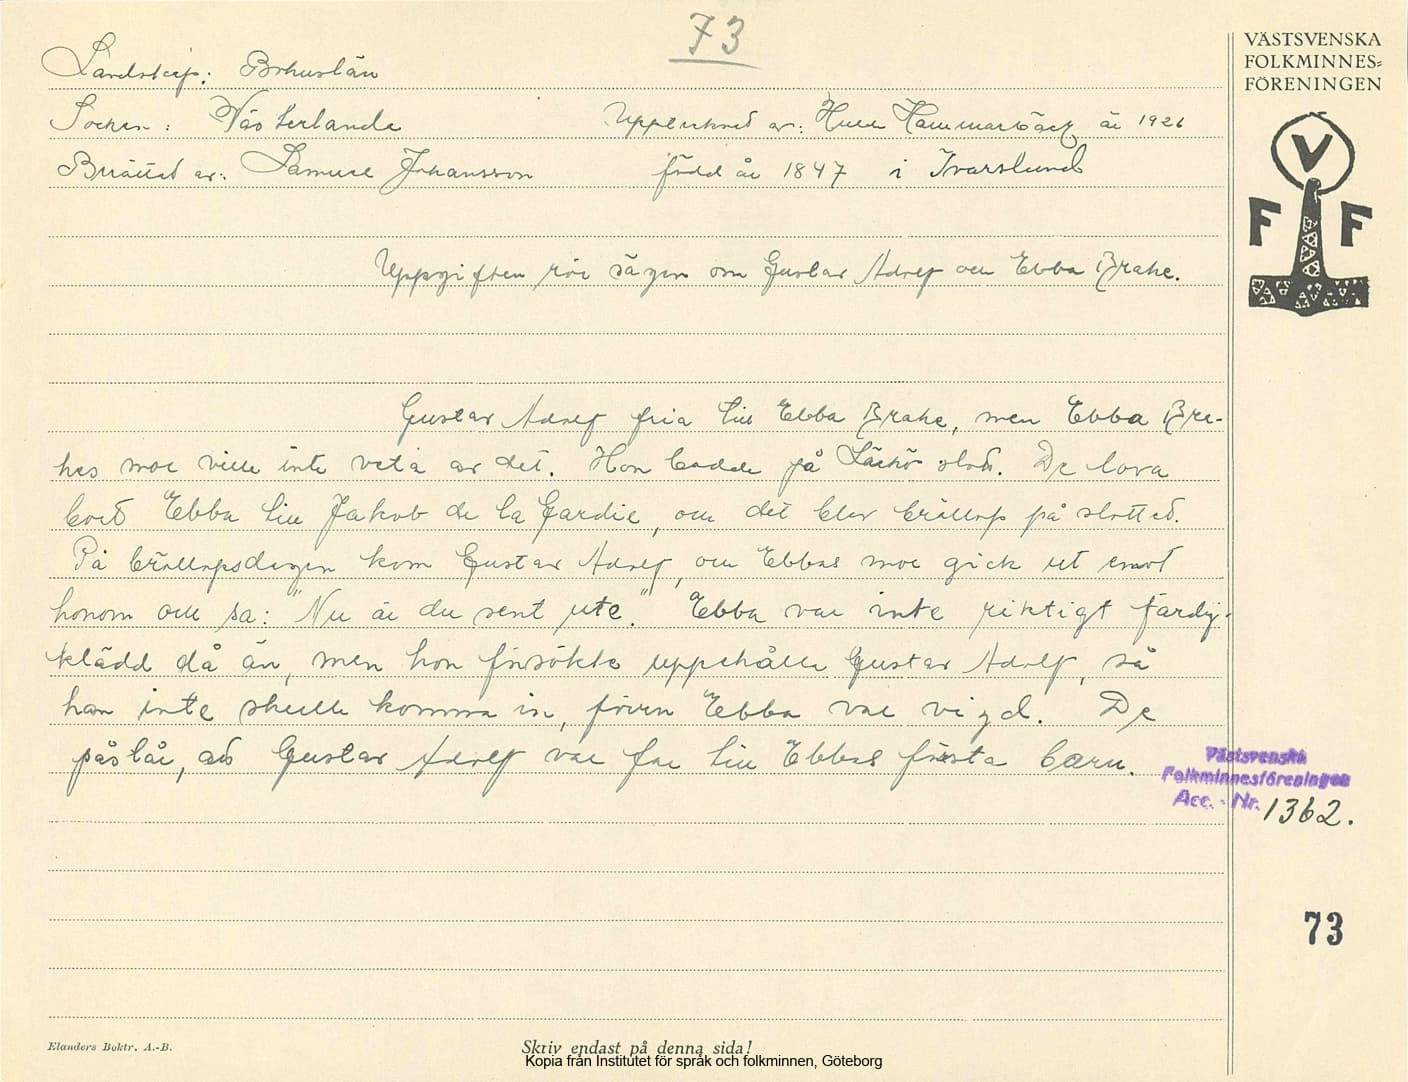 73
Landskap: Bohuslän
Socken: Västerlanda Upptecknat av: Hulda Hammarbäck år 1926
Berättat av: Samuel Johansson född år 1847 i Ivarslund
Uppgiften rör sägen om Gustav Adolf och Ebba Brahe.
Gustav Adolf fria till Ebba Brahe, men Ebba Bra-
hes mor ville inte veta av det. Hon bodde på Läckö slott. De lova
bort Ebba till Jakob de la Gardie, och det blev bröllop på slottet.
På bröllopsdagen kom Gustav Adolf, och Ebbas mor gick ut emot
honom och sa: "Nu är du sent ute." Ebba var inte riktigt färdig-
klädd då än, men hon försökte uppehålla Gustav Adolf, så
han inte skulle komma in, förrn Ebba var vigd. De
påstår, att Gustav Adolf var far till Ebbas första barn.
VÄSTSVENSKA
FOLKMINNES=
FÖRENINGEN
V
F F
Västsvenska
Folkminnesföreningen
Acc. - Nr. 1362.
73
Elanders Boktr. A.-B.
Skriv endast på denna sida!
Kopia från Institutet för språk och folkminnen, Göteborg